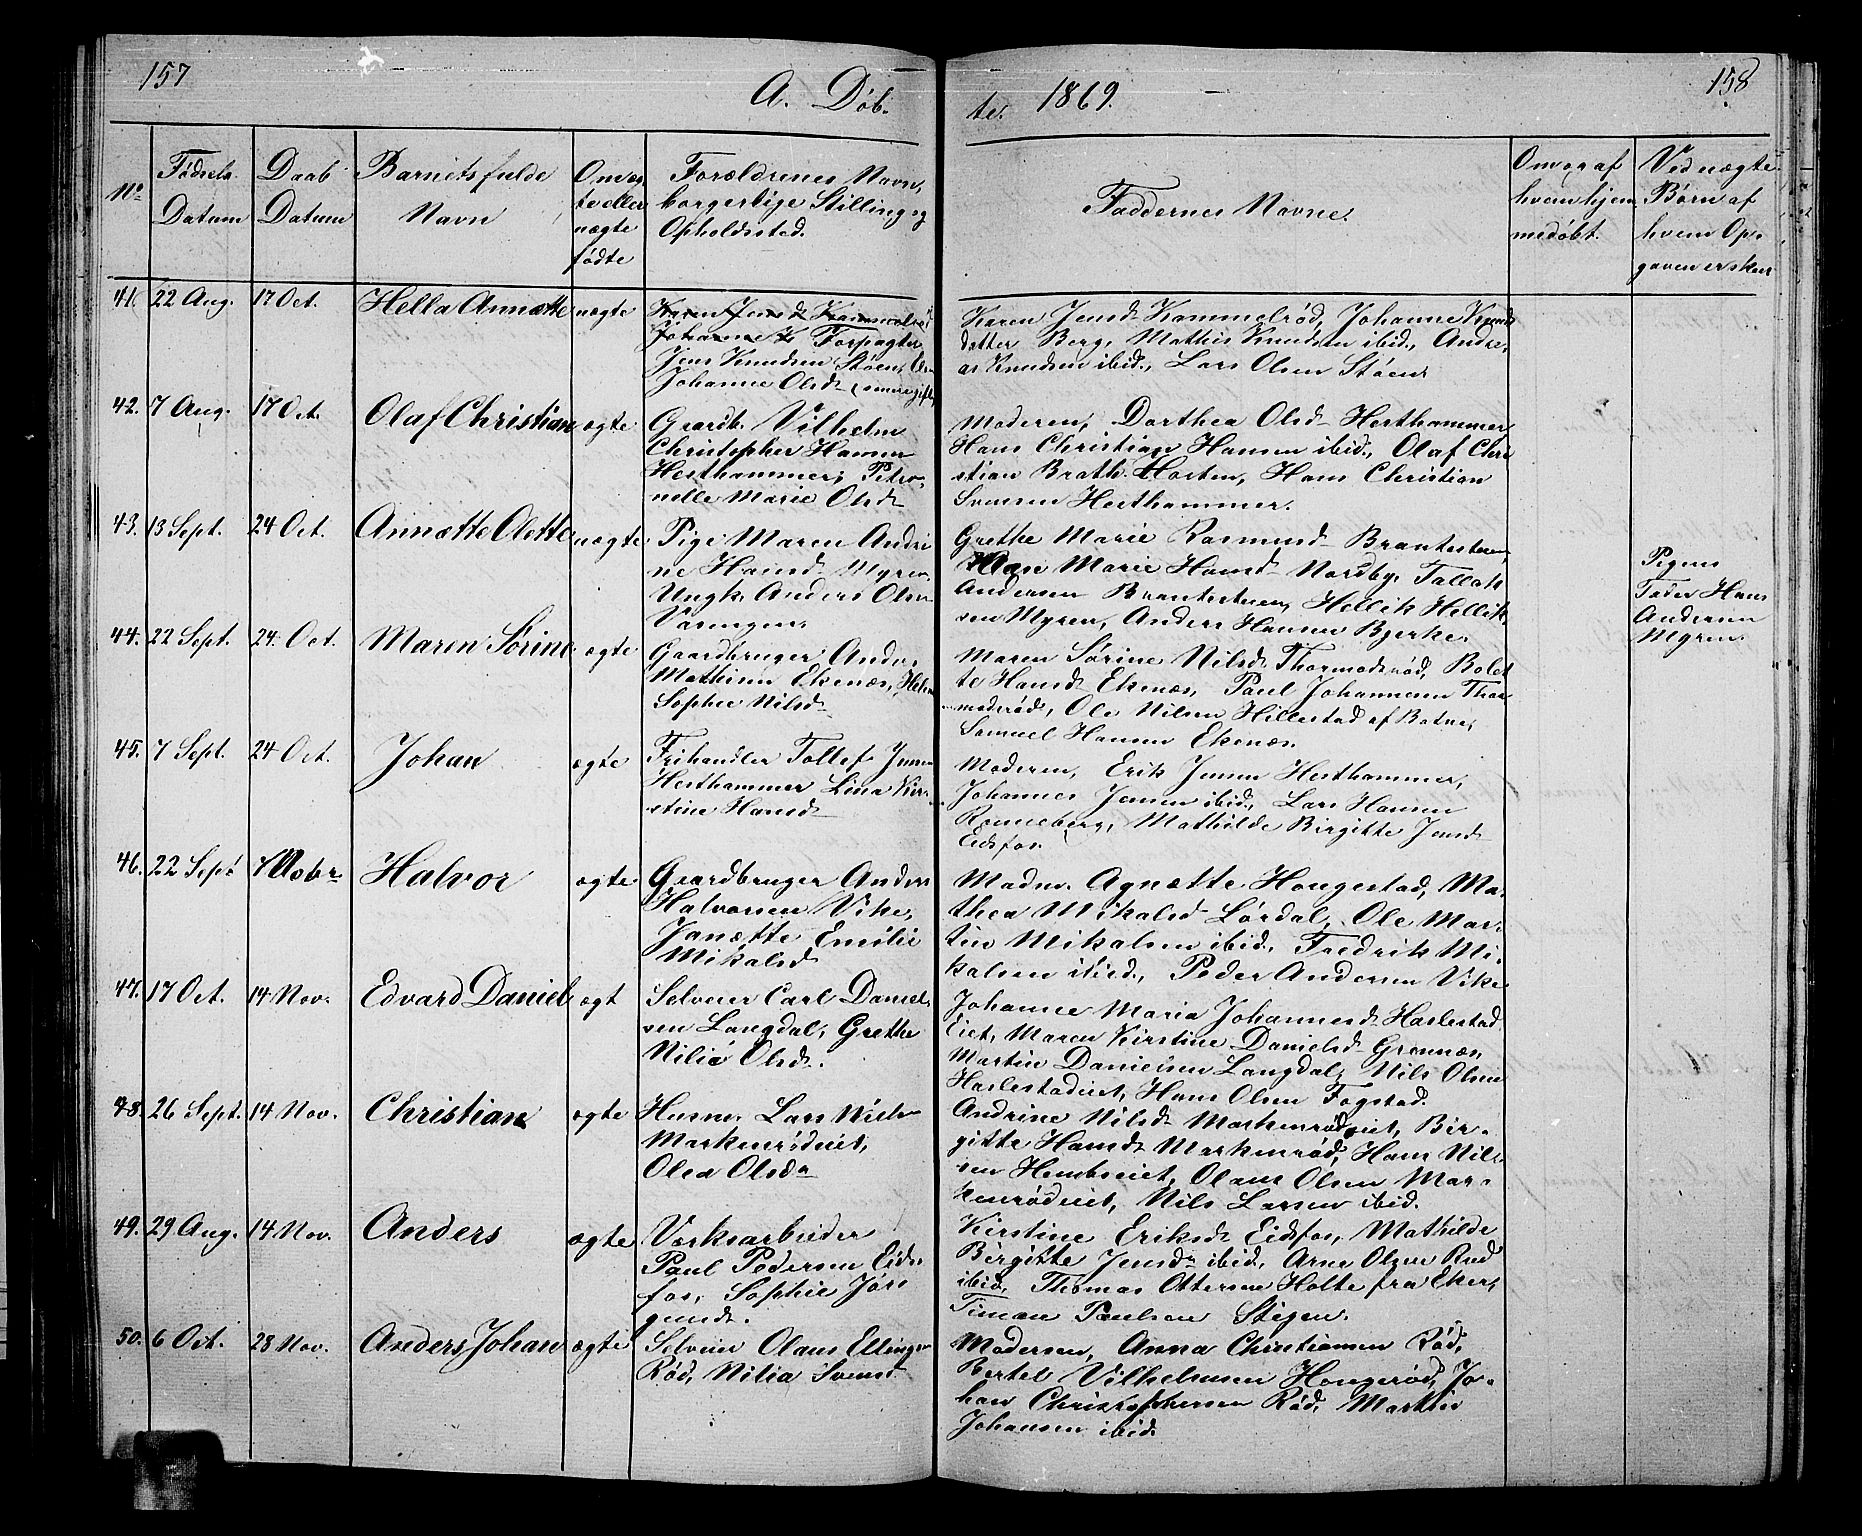 157
A. Døb-
te.
1869.
158
No
Fødsels
Datum
Daab
Datum
Barnets fulde
Navn
Om æg
te eller
uægte
fødte
Forældrenes Navn,
borgerlige Stilling og
Opholdssted.
Faddernes Navne.
Om og af
hvem hjem
medøbt.
Ved uægte
Børn af
hvem Op-
gaven er skeet
41. 22 Aug. 17 Oct. Hella Annette uægte
Karen Jensd. Kammelrød
Johanne K Forpagter
Jens Knudsen Støen,
Johanne Olsd.
Karen Jensd. Kammelrød, Johanne Knuds
datter Berg, Mathis Knudsen ibid., Andre,
as Knudsen ibid., Lars Olsen Støen.
42. 7 Aug. 17 Oct. Olaf Christian ægte
Gaardb. Vilhelm
Christopher Hansen
Hesthammer, Petro-
nelle Marie Olsd.
Moderen, Dorthea Olsd. Hesthammer,
Hans Christian Hansen ibid., Olaf Chri
stian Brath. Horten, Hans Christian
Svensen Hesthammer.
43. 13 Sept. 24 Oct. Annette Olette uægte
Pige Maren Andri
ne Hansd. Myren,
Ungk. Anders Olsen
Grethe Marie Rasmusd. Brantesteen,
Maren Marie Hansd. Nordby, Tallak
Andersen Brantesteen, Hellik Hellik
sen Myren, Anders Hansen Bjerke.
Pigens
Fader Hans
Andersen
Myren.
44. 22 Sept. 24 Oct. Maren Sørine ægte
Gaardbruger Anders
Mathisen Ekenæs, Helene
Sophie Nilsd.
Maren Sørine Nilsd. Thormodsrød, Bolet
te Hansd. Ekenæs, Paul Johannesen Thor
modsrød, Ole Nilsen Hillestad af Botne,
Samuel Hansen Ekenæs.
45. 7 Sept. 24 Oct. Johan ægte
Frihandler Tollef Jensen
Hesthammer Lina Kir-
stine Hansd.
Moderen, Erik Jensen Hesthammer,
Johannes Jensen ibid., Lars Hansen
Ronneberg, Mathilde Birgitte Jensd.
Eidsfos.
46. 22 Sept. 7 Nobr. Halvor ægte
Gaardbruger Anders
Halvorsen Vike,
Janette Emilie
Mikalsd.
Madm. Agnette Hougestad, Ma-
thea Mikalsd. Lørdal, Ole Mar-
tin Mikalsen ibid., Fredrik Mi-
kalsen ibid., Peder Andersen Vike.
47. 17 Oct. 14 Nov. Edvard Daniel ægt
Selveier Carl Daniel-
sen Langdal, Grethe
Nilia Olsd.
Johanne Maria Johannesd. Haslestad
Eiet, Maren Kirstine Danielsd. Grennes,
Martin Danielsen Langdal, Nils Olsen
Haslestadeiet, Hans Olsen Fogstad.
48. 26 Sept. 14 Nov. Christian ægte
Husm. Lars Niels.
Markenrødeiet,
Olea Olsdr
Andrine Nilsd. Markenrødeiet, Bir-
gitte Hansd. Markenrød, Hans Nil-
sen Hembseiet, Olaus Olsen Mar-
kenrødeiet, Nils Larsen ibid.
49. 29 Aug. 14 Nov. Anders ægte
Værksarbeider
Paul Pedersen Eids
fos, Sophie Jør
gensd.
Kirstine Eriksd. Eidsfos, Mathilde
Birgitte Jensdr ibid., Arne Olsen Rud
ibid., Thomas Ottersen Holte fra Eker,
Timan Paulsen Stigen.
50. 6 Oct. 28 Nov. Anders Johan ægte
Selveier Olaus Ellingsen
Rød, Nilia Svensd.
Moderen, Anna Christiansen Rød,
Bertel Vilhelmsen Hougerød, Jo-
han Christophersen Rød, Martin
Johansen ibid.